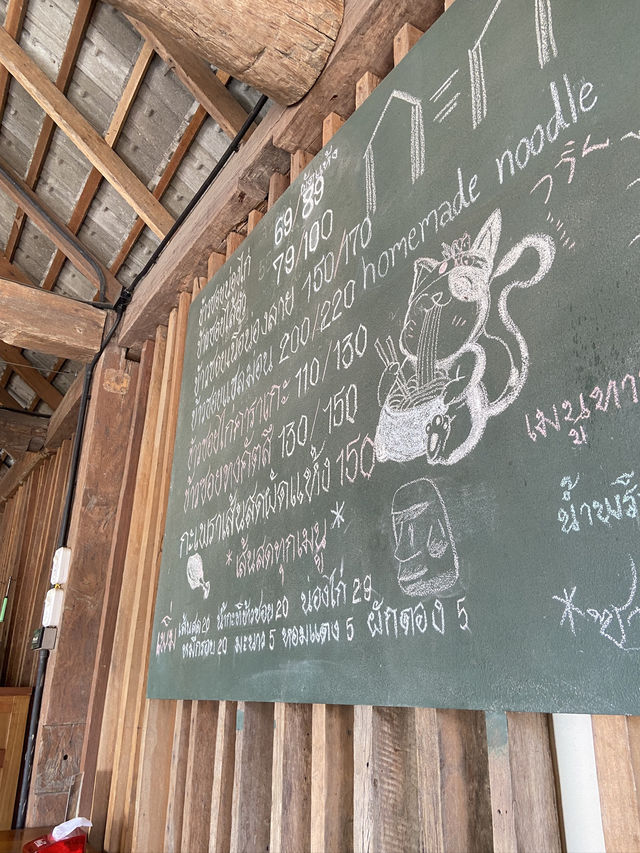 ข้าวซอยน่องไก่ 69/89
ข้าวซอยไส้อั่ว 79/100
ข้าวซอยเป็ดน่องลาย 150/170
ข้าวซอยแซลมอน 200/220
ข้าวซอยไก่คาราเกะ 110/130
ข้าวซอยทงคัตสึ 130/150
กะเพราเส้นสดผัดแห้ง 150
*เส้นสดทุกเมนู*
เพิ่ม เส้นสด 20 น้ำกะทิข้าวซอย 20 น่องไก่ 29
หมี่กรอบ 20 มะนาว 5 หอมแดง 5 ผักดอง 5
homemade noodle
เมนูทา
น้ำพริ